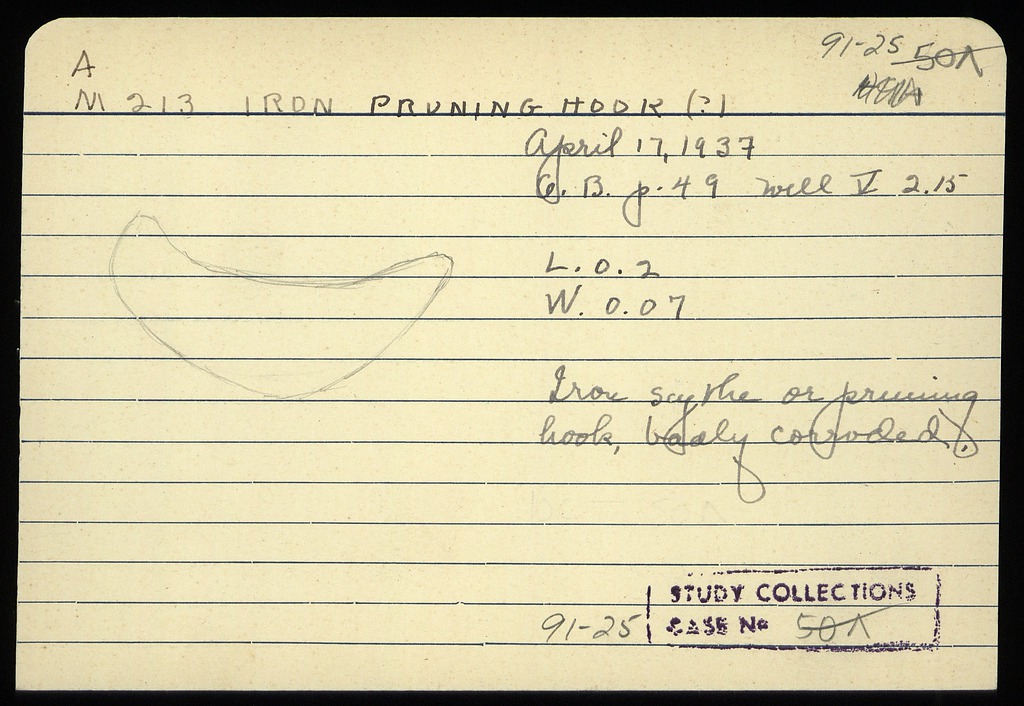 A
91-25 50Λ
M 213 IRON PRUNING HOOK (?)
April 17, 1937
G. B. p. 49 Well V 2.15
L. 0.2
W. 0.07
Iron scythe or pruning
hook, badly corroded.
STUDY COLLECTIONS
91-25 CASE No 50Λ